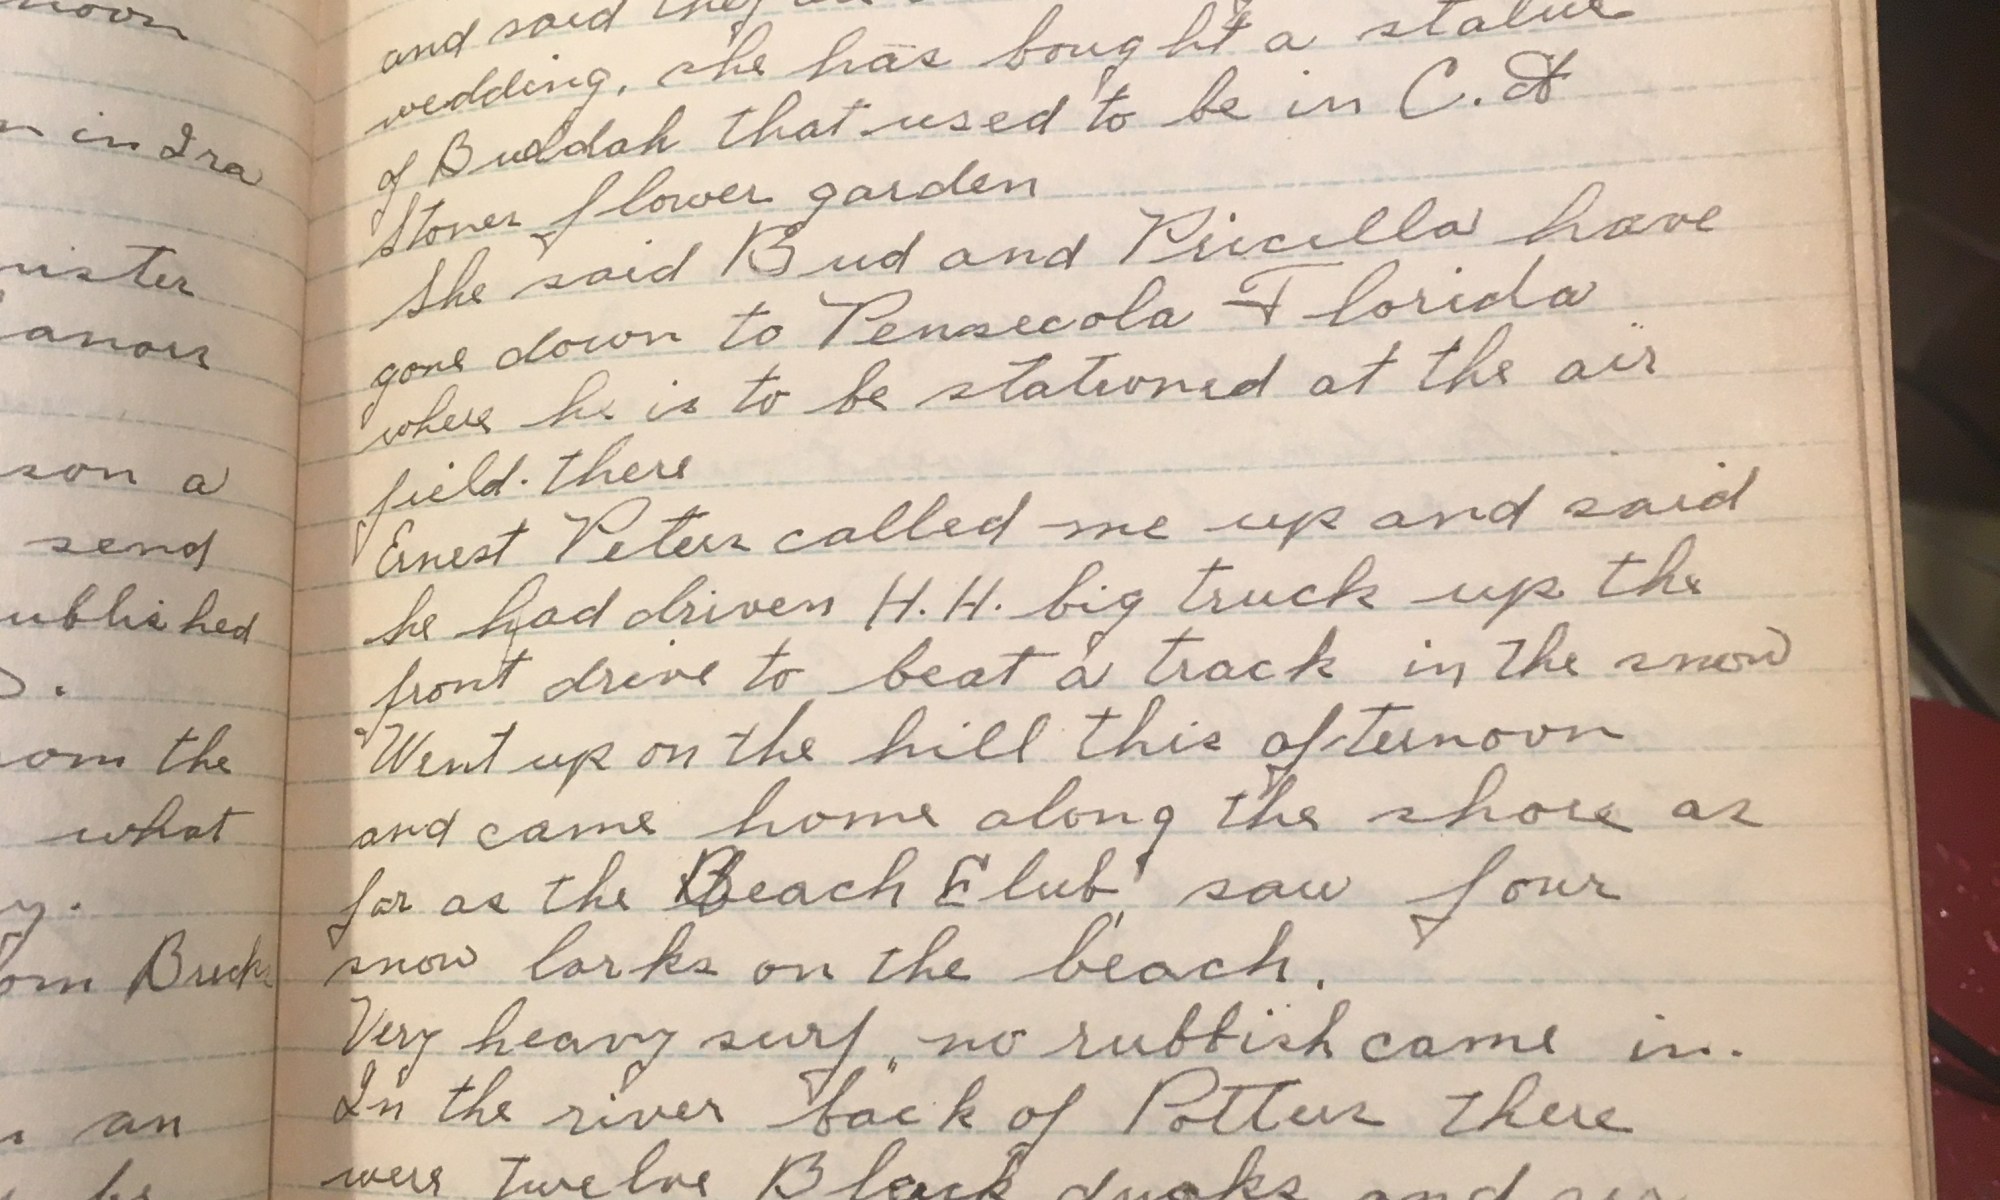 noon
n in Ira
nister
anors
son a
send
ublished
om the
what
y.
om Bruck
an
be
and said they
wedding, she has bought a statue
of Buddah that used to be in C. A
Stones flower garden
She said Bud and Pricella have
gone down to Pensecola Florida
where he is to be stationed at the air
field. there
Ernest Peters called me up and said
he had driven H. H. big truck up the
front drive to beat a track in the snow
Went up on the hill this afternoon
and came home along the shore as
far as the Beach Club, saw four
snow larks on the beach.
Very heavy surf, no rubbish came in.
In the river back of Potters there
were twelve Black ducks and